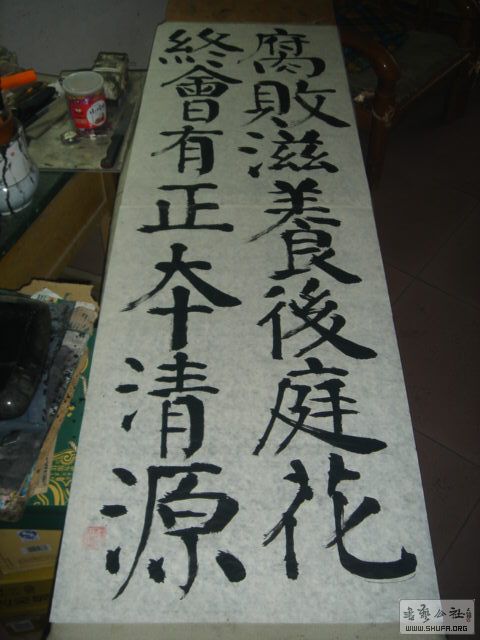 腐敗滋養後庭花
終會有正夲清源
書藝公社
WWW.SHUFA.ORG